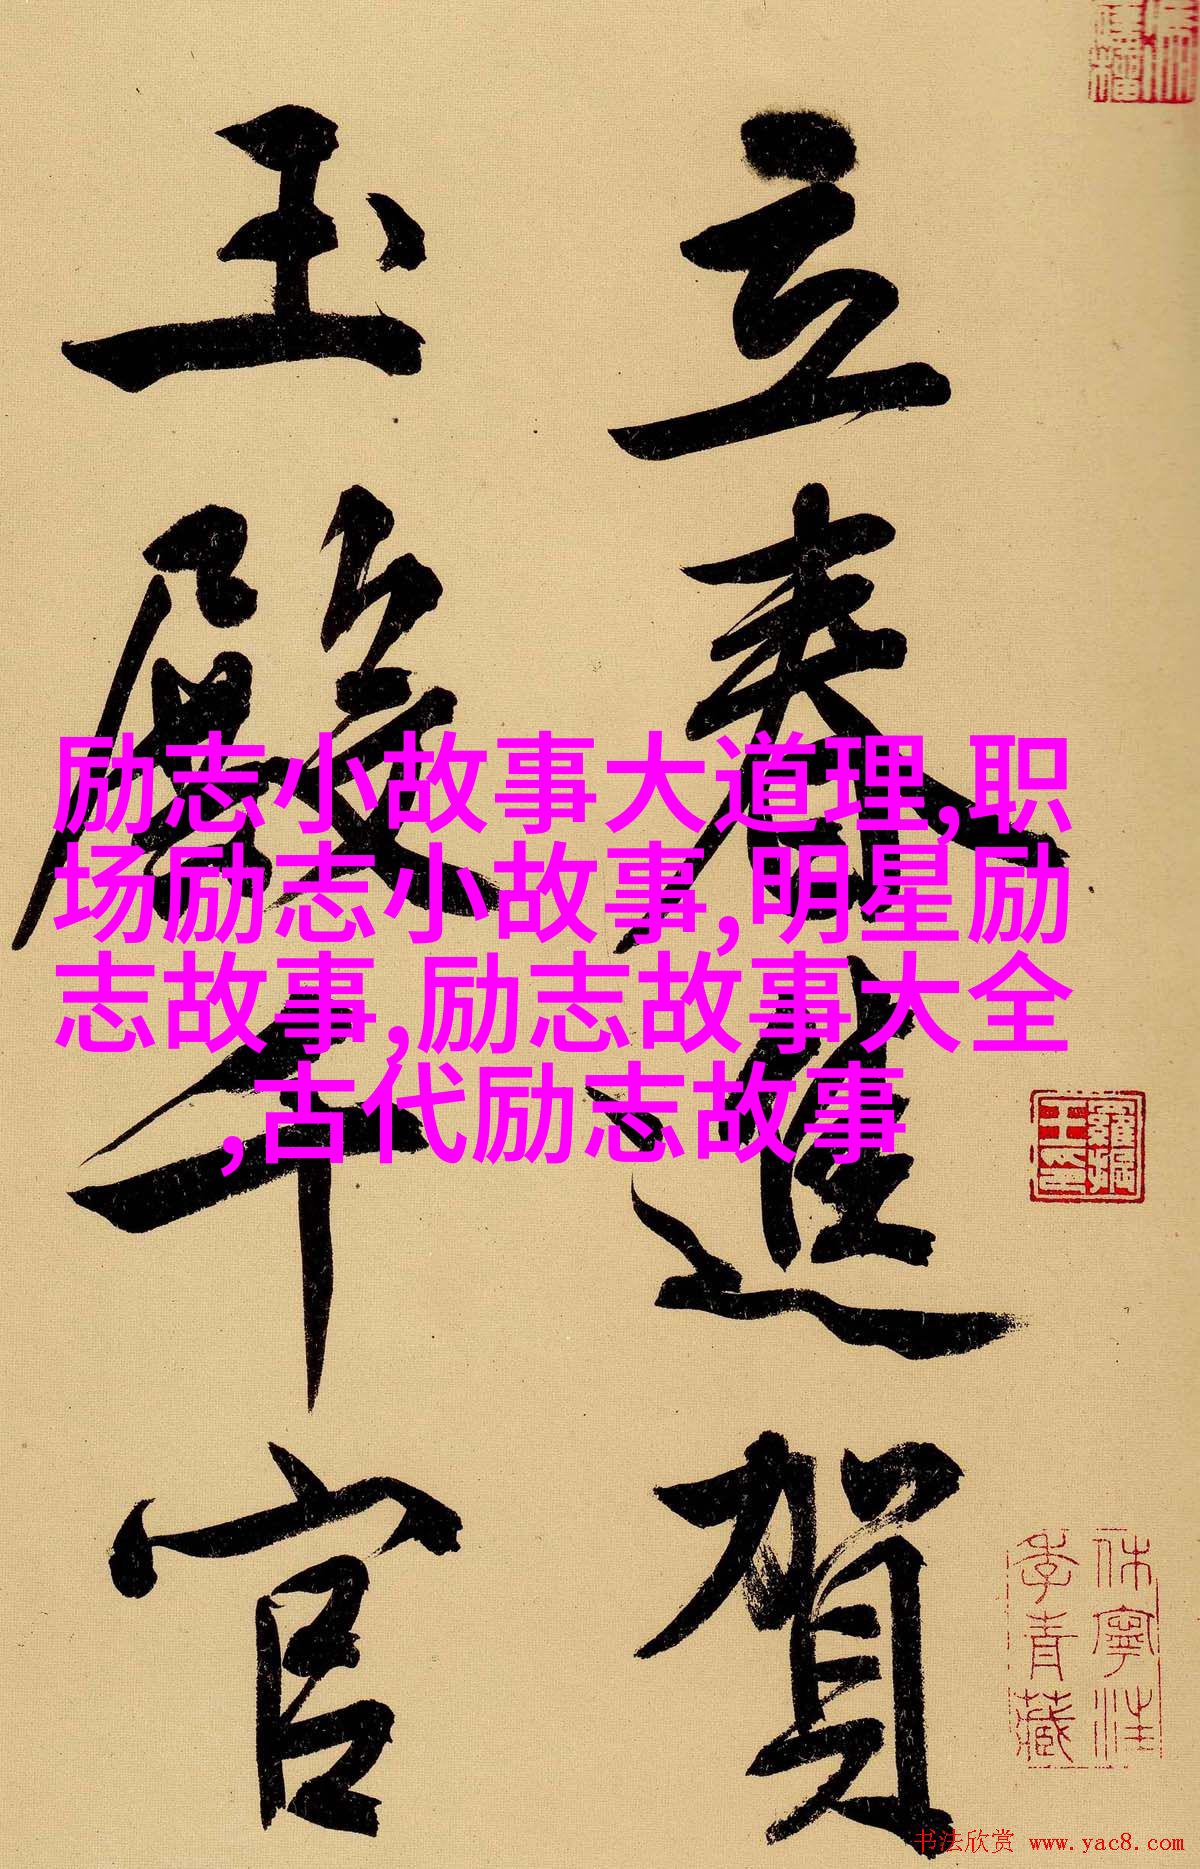 立春進賀
玉殿千官
励志小故事大道理,职
场励志小故事,明星励
志故事,励志故事大全
,古代励志故事
休寧汪
季青藏
书法欣赏 www.yac8.com